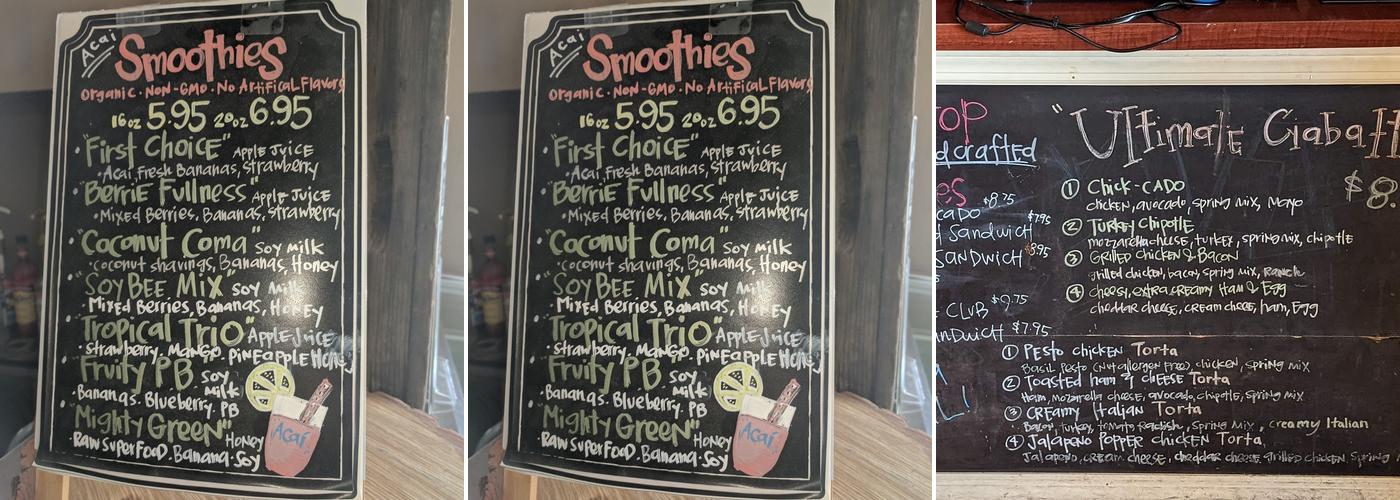 Acai
Smoothies
Organic · Non-GMO · No Artifical Flavors
16oz 5.95 20oz 6.95
"First Choice" Apple Juice
· Acai, Fresh Bananas, Strawberry
"BerriE Fullness" Apple Juice
· Mixed Berries, Bananas, Strawberry
"Coconut Coma" Soy Milk
· Coconut shavings, Bananas, Honey
"Soy BEE Mix" Soy Milk
Mixed Berries, Bananas, Honey
"Tropical Trio" Apple Juice
· Strawberry. Mango. Pineapple Honey
"Fruity PB" Soy Milk
· Bananas. Blueberry. PB
"Mighty Green" Honey
· Raw Superfood. Banana. Soy
Acai
Acai
Smoothies
Organic · Non-GMO · No Artifical Flavors
16oz 5.95 20oz 6.95
"First Choice" Apple Juice
· Acai, Fresh Bananas, Strawberry
"BerriE Fullness" Apple Juice
· Mixed Berries, Bananas, Strawberry
"Coconut Coma" Soy Milk
· Coconut shavings, Bananas, Honey
"Soy BEE Mix" Soy Milk
Mixed Berries, Bananas, Honey
"Tropical Trio" Apple Juice
· Strawberry. Mango. Pineapple Honey
"Fruity PB" Soy Milk
· Bananas. Blueberry. PB
"Mighty Green" Honey
· Raw Superfood. Banana. Soy
Acai
OP
dcrafted
es $8.75
cado $7.95
d Sandwich
Sandwich $8.95
Club $9.75
ndwich $7.95
"Ultimate Ciabatt
$8.
1 Chick-CADO
chicken, avocado, spring mix, Mayo
2 Turkey Chipotle
mozzarella cheese, turkey, spring mix, chipotle
3 Grilled Chicken & Bacon
grilled chicken, bacon, spring mix, Ranch
4 cheesy, extra creamy Ham & Egg
cheddar cheese, cream cheese, ham, Egg
1 Pesto chicken Torta
Basil Pesto (Nut allergen Free), chicken, spring mix
2 Toasted ham & cheese Torta
Ham, mozarella cheese, avocado, chipotle, spring mix
3 Creamy Italian Torta
Bacon, turkey, tomato Radish, spring Mix, creamy Italian
4 Jalapeno Popper chicken Torta
Jalapeno, cream cheese, cheddar cheese, grilled chicken, Spring